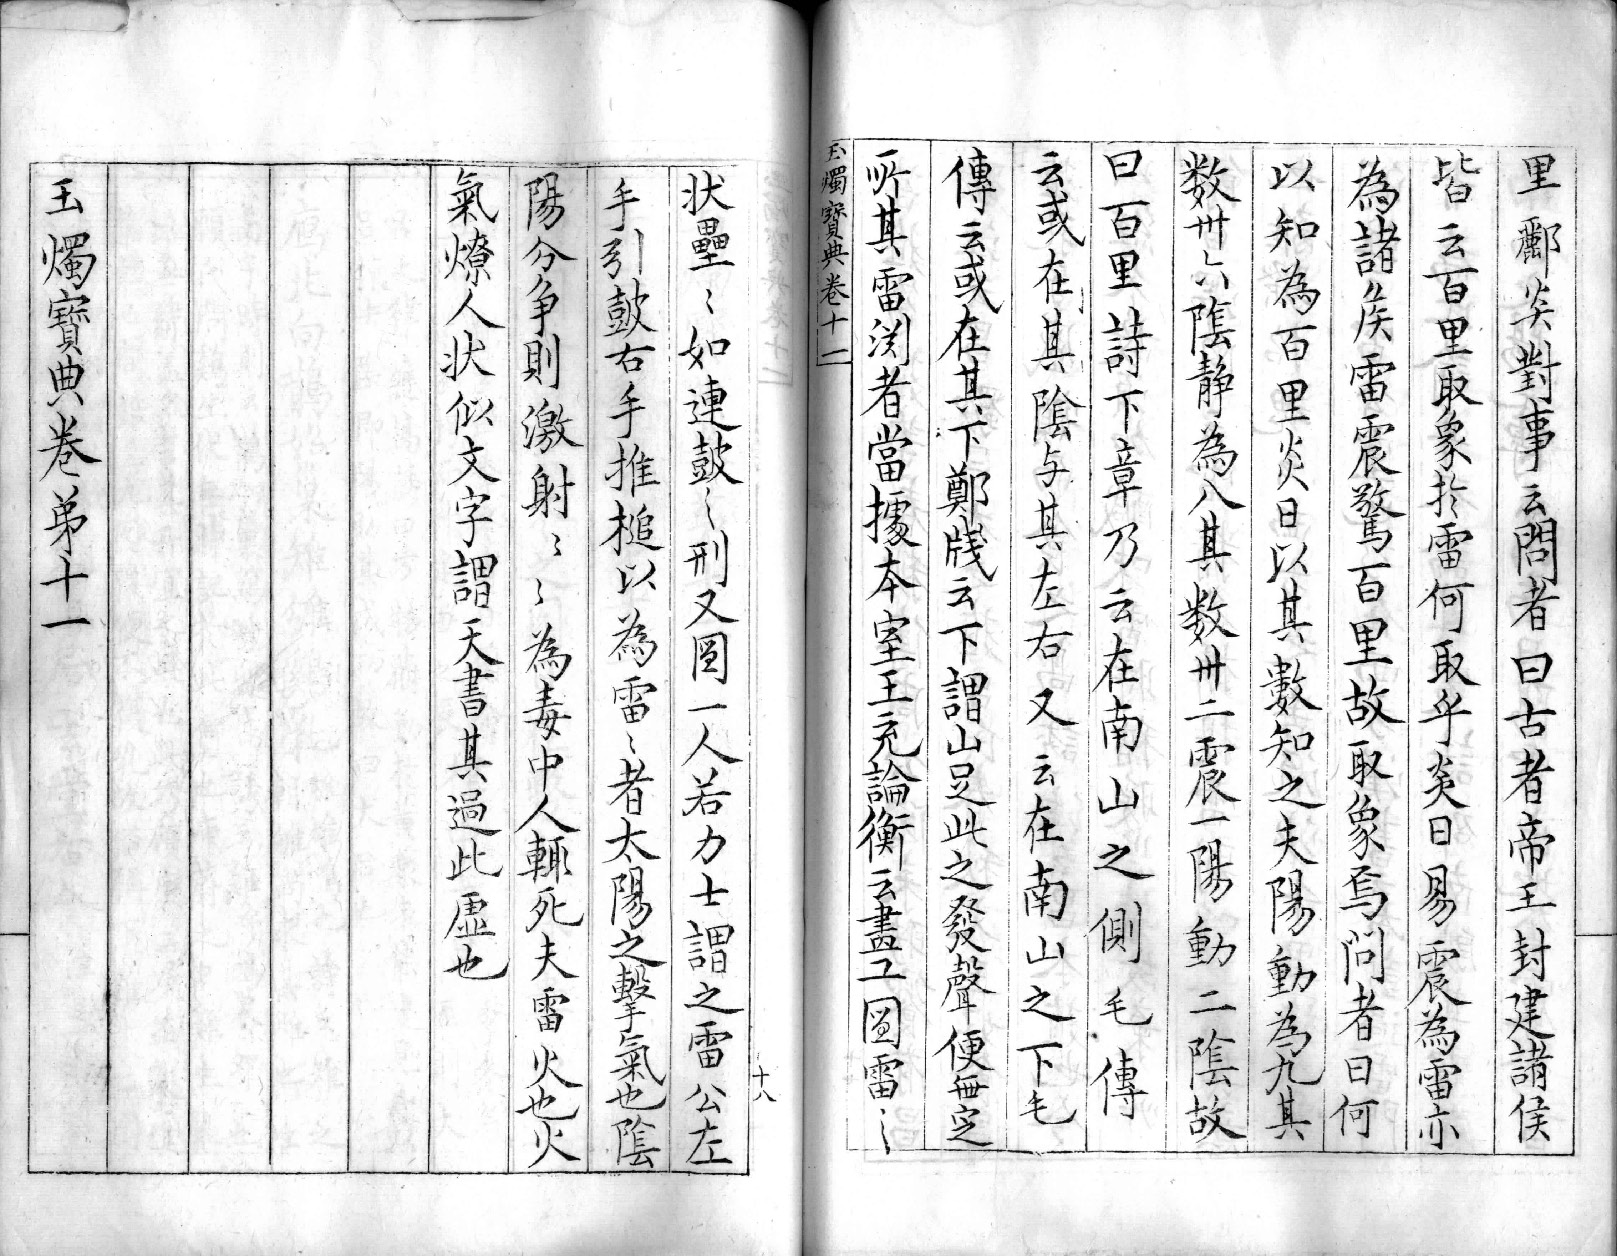 里酈炎對事云問者曰古者帝王封建諸侯
皆云百里取象於雷何取乎炎曰易震為雷亦
為諸侯雷震驚百里故取象焉問者曰何
以知為百里炎曰以其數知之夫陽動為九其
数卅六陰静為八其数卅二震一陽動二陰故
曰百里詩下章乃云在南山之側毛傳
云或在其陰与其左右又云在南山之下毛
傳云或在其下鄭牋云下謂山足此之發聲便無定
所其雷渕者當據本室王充論衡云畫工圖雷〻
玉燭寶典卷十一
十八
状壘〻如連皷〻刑又圖一人若力士謂之雷公左
手引皷右手推槌以為雷〻者太陽之擊氣也陰
陽分争則激射〻〻為毒中人輙死夫雷火也火
氣燎人状似文字謂天書其過此虛也
玉燭寶典卷弟十一